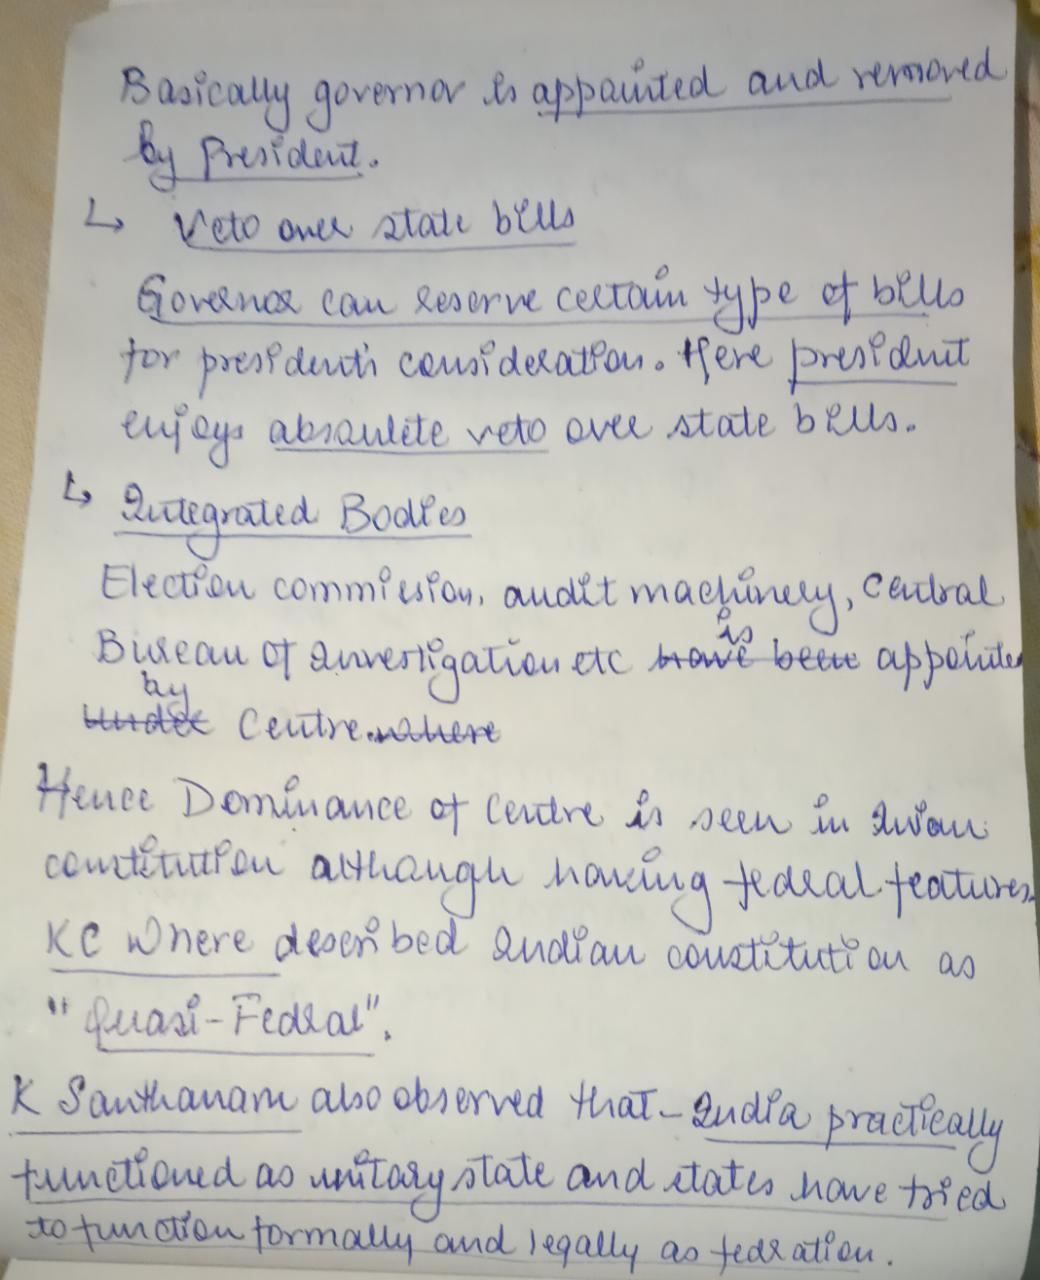 Basically governor is appointed and removed
by President.
↳ Veto over state bills
Governor can reserve certain type of bills
for president's consideration. Here president
enjoys absoulete veto over state bills.
↳ Integrated Bodies
Election commission, audit machinery, Central
is
Bureau of Investigation etc have been appointed
by
under Centre. where
Hence Dominance of Centre is seen in Indian
constitution although having federal features.
KC Where described Indian constitution as
"Quasi-Fedral".
K Santhanam also observed that - India practically
functioned as unitary state and states have tried
to function formally and legally as fedration.